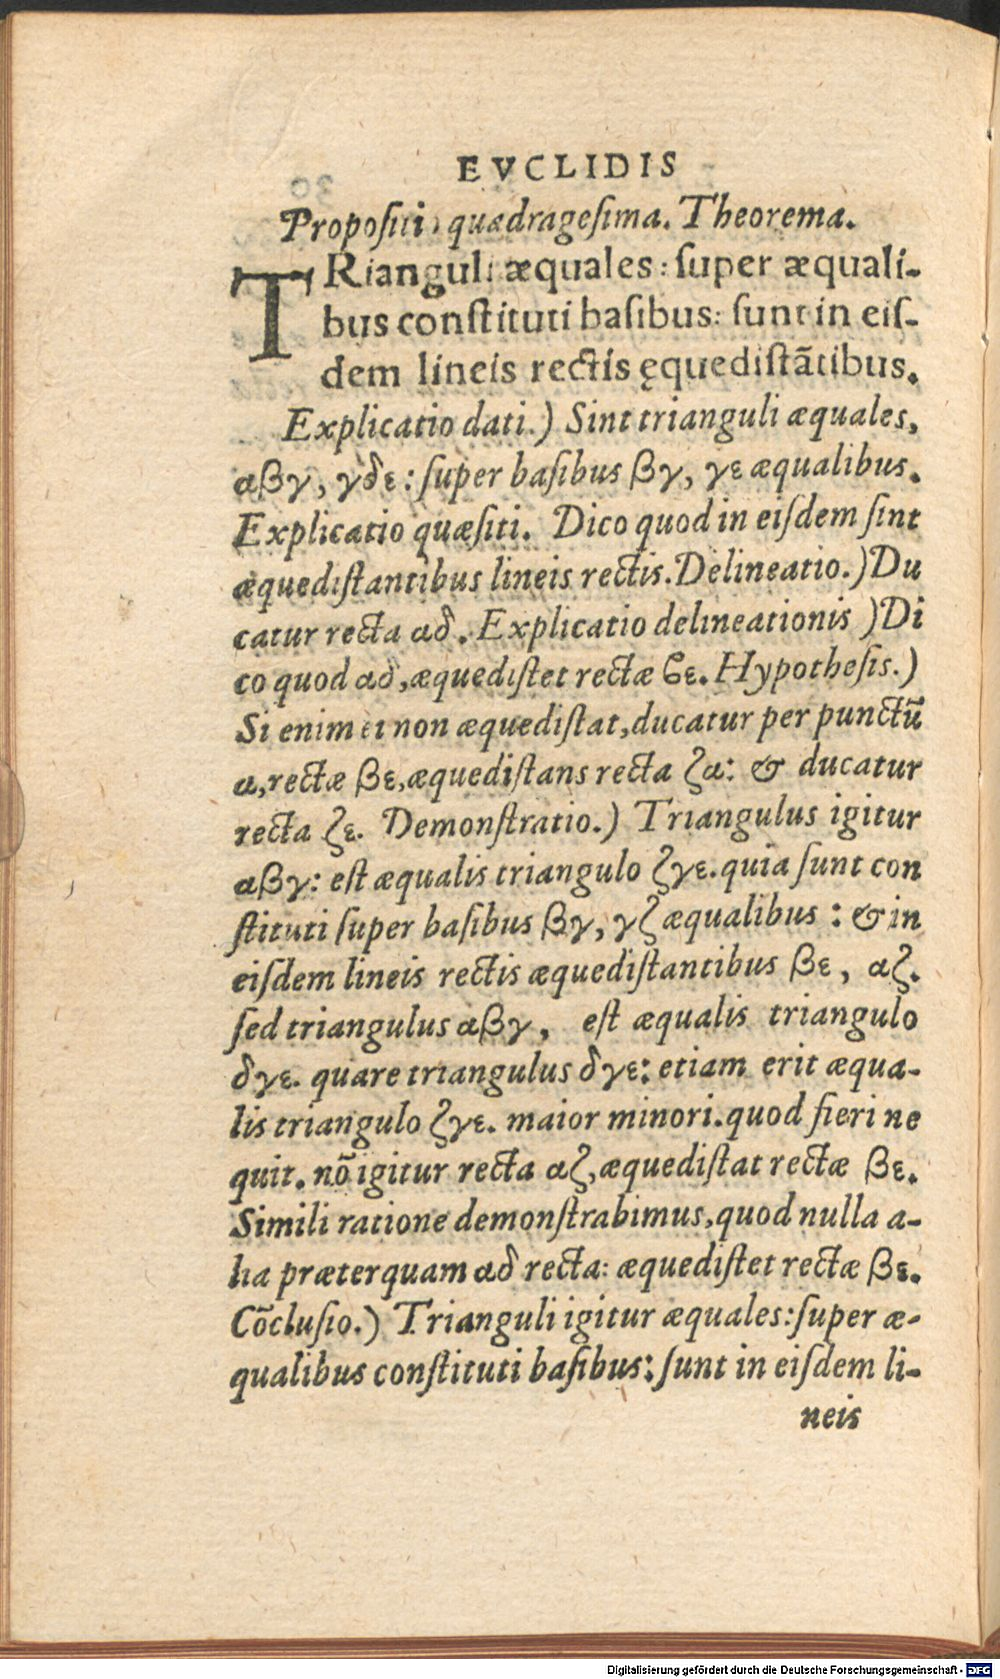 EVCLIDIS
Propositi quadragesima. Theorema.
TRianguli æquales: super æquali-
bus constituti basibus: sunt in eiſ-
dem lineis rectis ęquediſtãtibus.
Explicatio dati.) Sint trianguli æquales,
αβγ, γδε: ſuper baſibus βγ, γε æqualibus.
Explicatio quæſiti. Dico quod in eiſdem ſint
æquediſtantibus lineis rectis. Delineatio.) Du
catur recta αδ. Explicatio delineationis) Di
co quod αδ, æquediſtet rectæ ϐε. Hypotheſis.)
Si enim ei non æquediſtat, ducatur per punctũ
α, rectæ βε, æquediſtans recta ζα: & ducatur
recta ζε. Demonſtratio.) Triangulus igitur
αβγ: eſt æqualis triangulo ζγε. quia ſunt con
ſtituti ſuper baſibus βγ, γζ æqualibus: & in
eiſdem lineis rectis æquediſtantibus βε, αζ.
ſed triangulus αβγ, eſt æqualis triangulo
δγε. quare triangulus δγε: etiam erit æqua-
lis triangulo ζγε. maior minori. quod fieri ne
quit. nõ igitur recta αζ, æquediſtat rectæ βε.
Simili ratione demonſtrabimus, quod nulla a-
lia præterquam αδ recta: æquediſtet rectæ βε.
Cõcluſio.) Trianguli igitur æquales: ſuper æ-
qualibus conſtituti baſibus: ſunt in eiſdem li-
neis
Digitalisierung gefördert durch die Deutsche Forschungsgemeinschaft - DFG